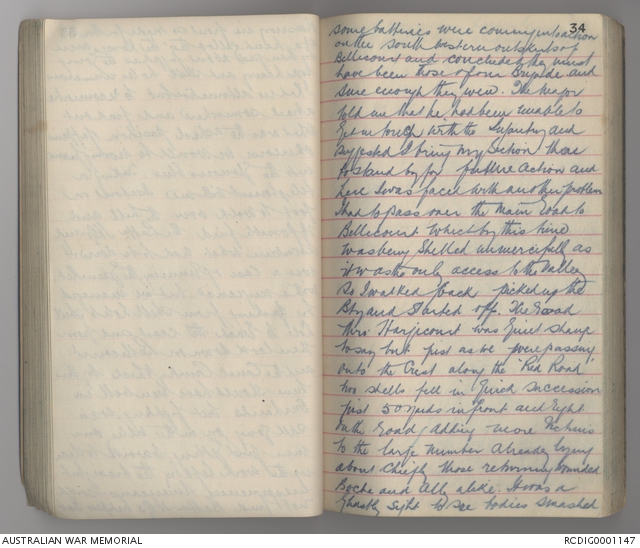 34
some batteries were coming into action
on the South Western outskirts of
Bellicourt and concluded they must
have been those of our Brigade and
sure enough they were. The Major
told me that he had been unable to
get in touch with the Infantry and
suggested I bring my Section there
to stand by for further Action and
here I was faced with another problem
I had to pass over the Main Road to
Bellecourt which by this time
was being Shelled unmercifully as
it was the only access to the Valley
So I walked back picked up the
Boy and Started off. The Road
thro Hargicourt was Quiet strange
to say but just as we were passing
onto the Crest along the 'Red Road'
two shells fell in Quick Succession
just 50 yards in front and Right
on the Road, adding more Victims
to the large number Already lying
about chiefly those returning wounded
Boche and Ally alike. It was a
ghastly Sight to see bodies smashed
AUSTRALIAN WAR MEMORIAL
RCDIG0001147